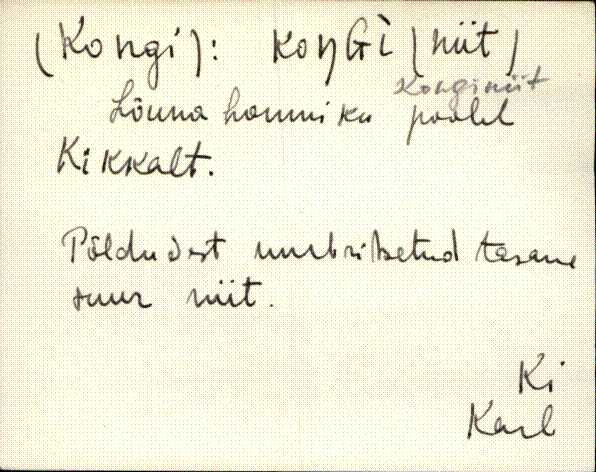 (Kongi): KOŊGÌ (niit)
Konginiit
Lõuna hommiku poolel
Kikkalt.
Põldudest umbritsetud tasane
suur niit.
Ki
Karl